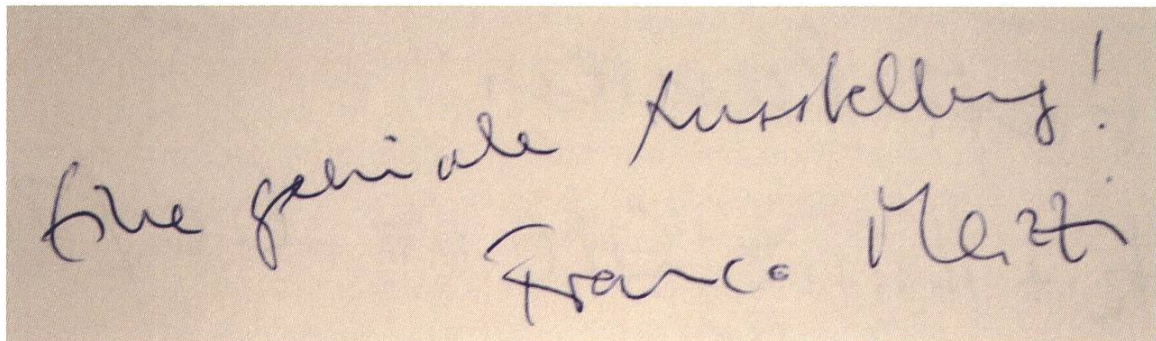 Eine geniale Ausstellung!
Franco